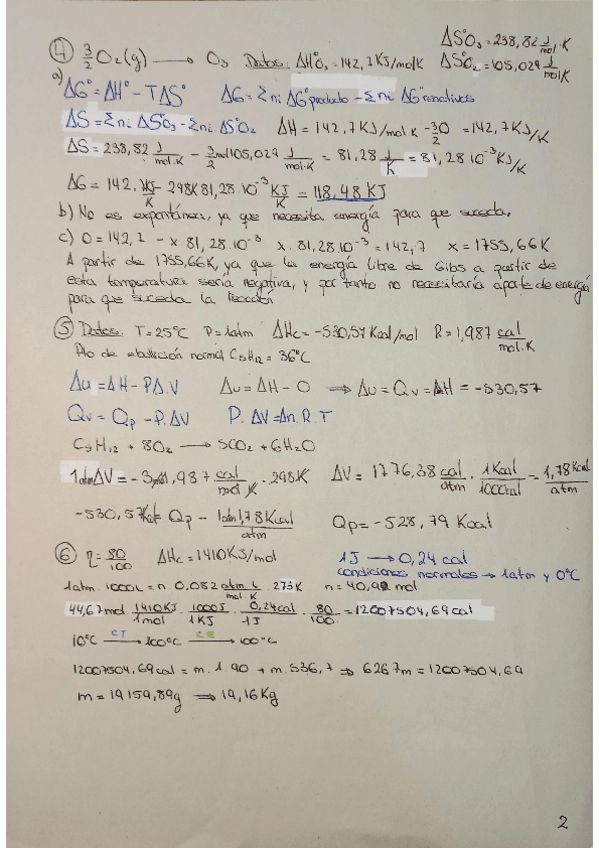 ④ 3/2 O₂(g) ⟶ O₃ Datos: ΔH°O₃ = 142,2 KJ/molK ΔS°O₃ = 238,82 J/mol·K
ΔS°O₂ = 105,029 J/mol·K
a) ΔG° = ΔH° - TΔS° ΔG = Σni ΔG°producto - Σni ΔG°reactivos
ΔS = Σni ΔS°O₃ - Σni ΔS°O₂ ΔH = 142,7 KJ/mol·K - 3/2 0 = 142,7 KJ/K
ΔS = 238,82 J/mol·K - 3/2 mol 105,029 J/mol·K = 81,28 J/K = 81,28·10⁻³ KJ/K
ΔG = 142,7 KJ/K - 298K 81,28·10⁻³ KJ/K = 118,48 KJ
b) No es espontánea, ya que necesita energía para que suceda.
c) 0 = 142,2 - x 81,28·10⁻³ x·81,28·10⁻³ = 142,7 x = 1755,66K
A partir de 1755,66K, ya que la energía libre de Gibs a partir de
esta temperatura seria negativa, y por tanto no necesitaría aporte de energía
para que suceda la reacción
⑤ Datos: T = 25°C P = 1atm ΔHc = -530,57 Kcal/mol R = 1,987 cal/mol·K
Pto de ebullición normal C₅H₁₂ = 36°C
ΔU = ΔH - PΔ.V ΔU = ΔH - 0 ⟹ ΔU = Qv = ΔH = -530,57
Qv = Qp - P.ΔV P. ΔV = Δn. R. T
C₅H₁₂ + 8O₂ ⟶ 5CO₂ + 6H₂O
1atmΔV = -3mol 1,987 cal/mol K · 298K ΔV = 1776,38 cal/atm · 1Kcal/1000cal = 1,78Kcal/atm
-530,57Kcal = Qp - 1atm 1,78Kcal/atm Qp = -528,79 Kcal
⑥ η = 80/100 ΔHc = 1410KJ/mol 1J ⟶ 0,24 cal
condiciones normales → 1atm y 0°C
1atm · 1000L = n · 0,082 atm·L/mol·K · 273K n = 40,92 mol
44,67mol 1410KJ/1mol · 1000J/1KJ · 0,24cal/1J · 80/100 = 12007504,69cal
10°C ⟶ CT 100°C ⟶ 100°C
12007504,69cal = m·1·90 + m·536,7 ⟹ 626,7m = 12007504,69
m = 19159,89g ⟹ 19,16Kg
2